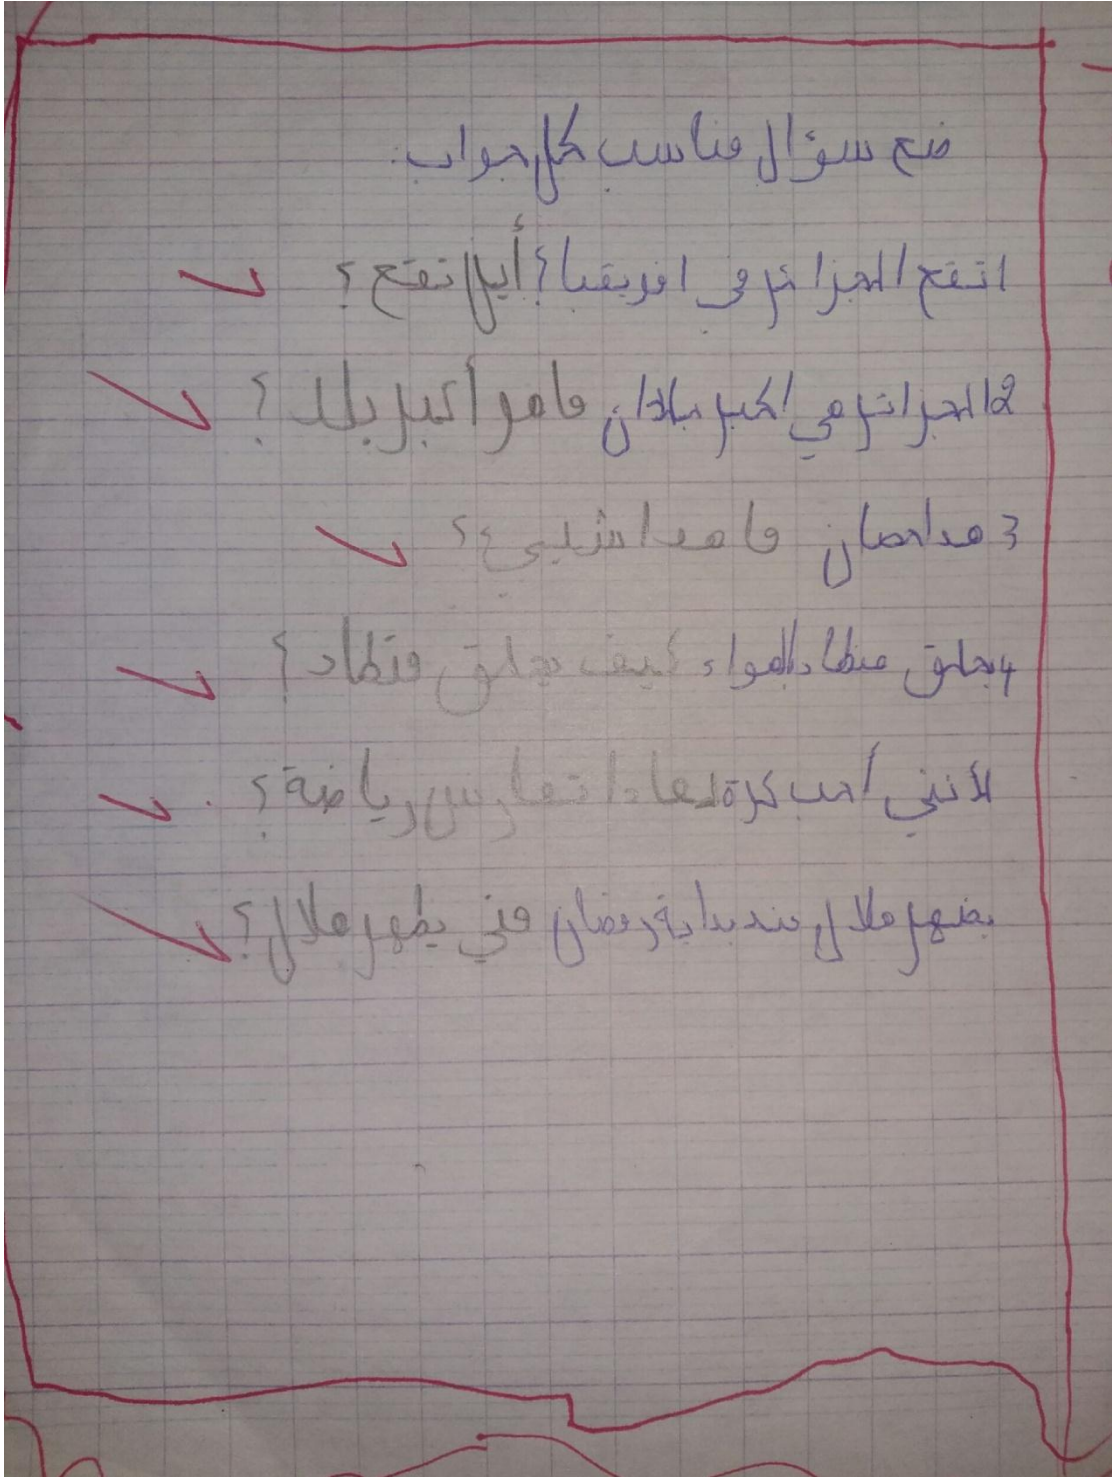 ضع سؤال مناسب لكل جواب.
1 تقع الجزائر في افريقيا؟ أين تقع؟
2 الجزائر هي اكبر بلدان ما هو أكبر بلد؟
3 هدا حصان ما هدا شيئ؟
4 يحلق منطاد بالهواء كيف يحلق منطاد؟
لأنني أحب كرة لمادا تمارس رياضة؟
يضهر هلال عند بداية رمضان متي يظهر هلال؟